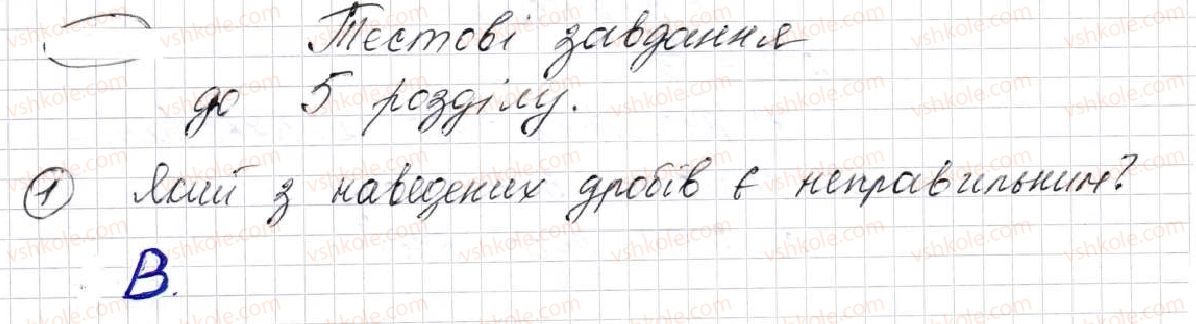 Тестові завдання
до 5 розділу.
1 Який з наведених дробів є неправильним?
В.